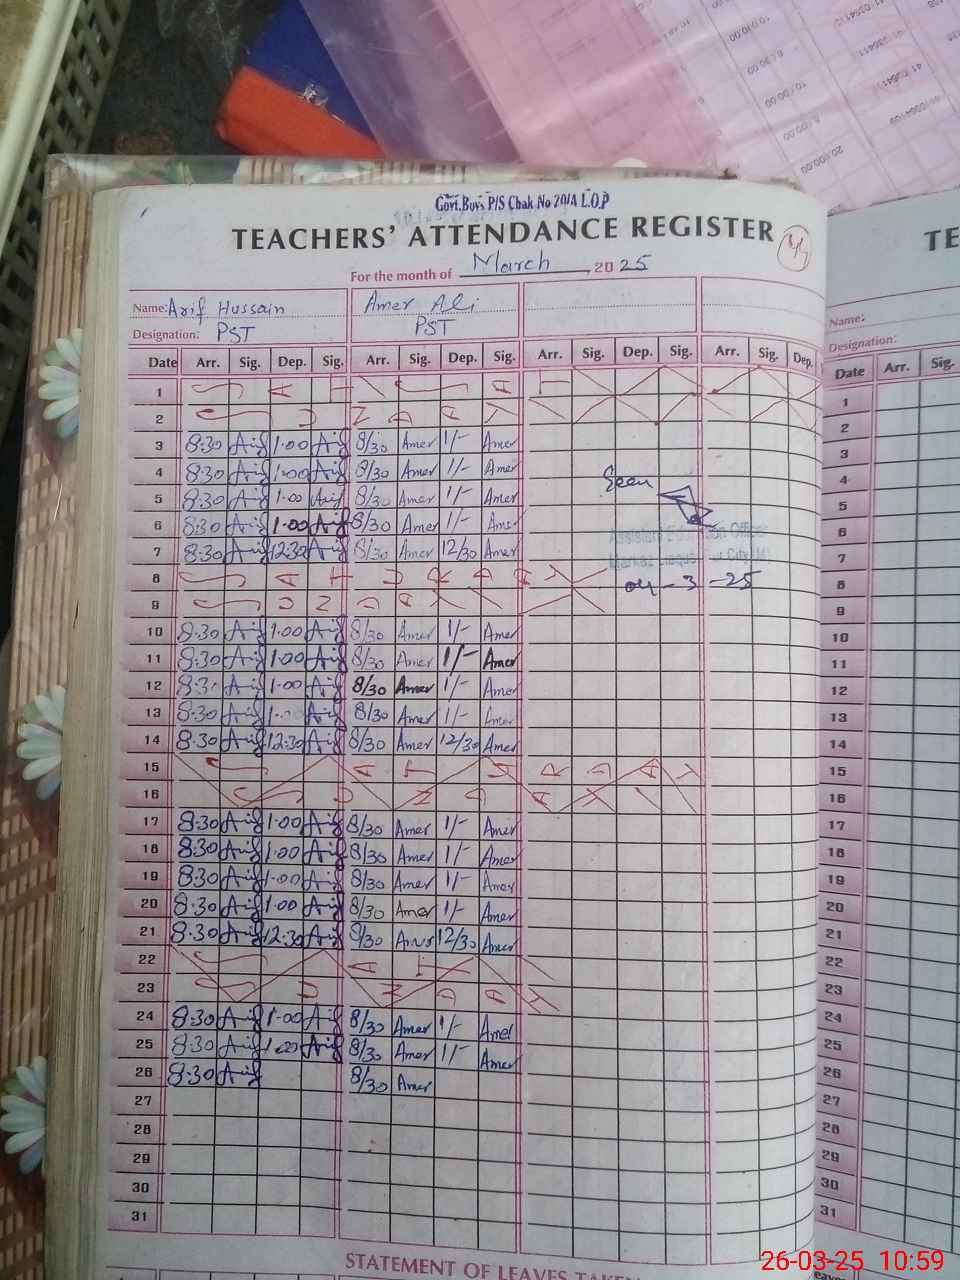 Govt.Boys P/S Chak No 20/A L.O.P
TEACHERS' ATTENDANCE REGISTER
For the month of March 2025
Name: Arif Hussain Amer Ali
Designation: PST PST
Date Arr. Sig. Dep. Sig. Arr. Sig. Dep. Sig. Arr. Sig. Dep. Sig. Arr. Sig. Dep.
1 S A T S A T
2 S U N D A Y
3 8:30 Arif 1:00 Arif 8/30 Amer 1/- Amer
4 8:30 Arif 1:00 Arif 8/30 Amer 1/- Amer
5 8:30 Arif 1:00 Arif 8/30 Amer 1/- Amer
6 8:30 Arif 1:00 Arif 8/30 Amer 1/- Amer
7 8:30 Arif 12:30 Arif 8/30 Amer 12/30 Amer
8 S A T U R D A Y
9 S U N D A Y
10 8:30 Arif 1:00 Arif 8/30 Amer 1/- Amer
11 8:30 Arif 1:00 Arif 8/30 Amer 1/- Amer
12 8:30 Arif 1:00 Arif 8/30 Amer 1/- Amer
13 8:30 Arif 1:00 Arif 8/30 Amer 1/- Amer
14 8:30 Arif 12:30 Arif 8/30 Amer 12/30 Amer
15 S A T U R D A Y
16 S U N D A Y
17 8:30 Arif 1:00 Arif 8/30 Amer 1/- Amer
18 8:30 Arif 1:00 Arif 8/30 Amer 1/- Amer
19 8:30 Arif 1:00 Arif 8/30 Amer 1/- Amer
20 8:30 Arif 1:00 Arif 8/30 Amer 1/- Amer
21 8:30 Arif 12:30 Arif 8/30 Amer 12/30 Amer
22 S A T
23 S U N D A Y
24 8:30 Arif 1:00 Arif 8/30 Amer 1/- Amer
25 8:30 Arif 1:00 Arif 8/30 Amer 1/- Amer
26 8:30 Arif 8/30 Amer
27
28
29
30
31
Seen
Assistant Education Officer
04-3-25
STATEMENT OF LEAVES TAKEN
TE
Name:
Designation:
Date Arr. Sig.
1
2
3
4
5
6
7
8
9
10
11
12
13
14
15
16
17
18
19
20
21
22
23
24
25
26
27
28
29
30
31
26-03-25 10:59